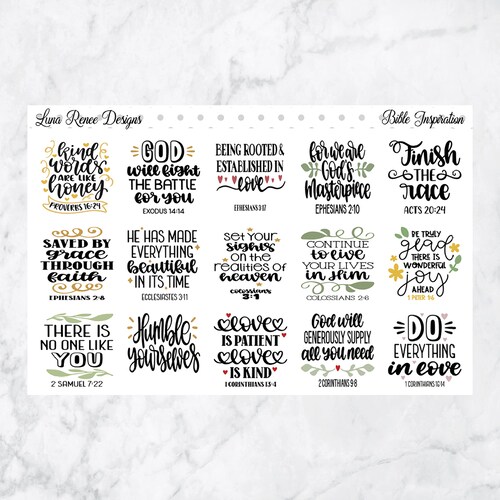 Luna Renee Designs
Bible Inspiration
kind
words
are like
honey
PROVERBS 16:24
GOD
will fight
THE BATTLE
for you
EXODUS 14:14
BEING ROOTED &
ESTABLISHED IN
love
EPHESIANS 3:17
for we are
God's
masterpiece
EPHESIANS 2:10
Finish
THE
race
ACTS 20:24
SAVED BY
grace
THROUGH
faith
EPHESIANS 2:8
HE HAS MADE
EVERYTHING
beautiful
IN ITS TIME
ECCLESIASTES 3:11
SET YOUR
sights
on the
realities of
heaven
colossians
3:1
CONTINUE
to live
YOUR LIVES
in Him
COLOSSIANS 2:6
BE TRULY
glad
THERE IS
WONDERFUL
joy
AHEAD
1 PETER 1:6
THERE IS
NO ONE LIKE
YOU
2 SAMUEL 7:22
Humble
yourselves
LOVE
IS PATIENT
LOVE
IS KIND
1 CORINTHIANS 13:4
God will
GENEROUSLY SUPPLY
all you need
2 CORINTHIANS 9:8
DO
EVERYTHING
in love
1 CORINTHIANS 16:14